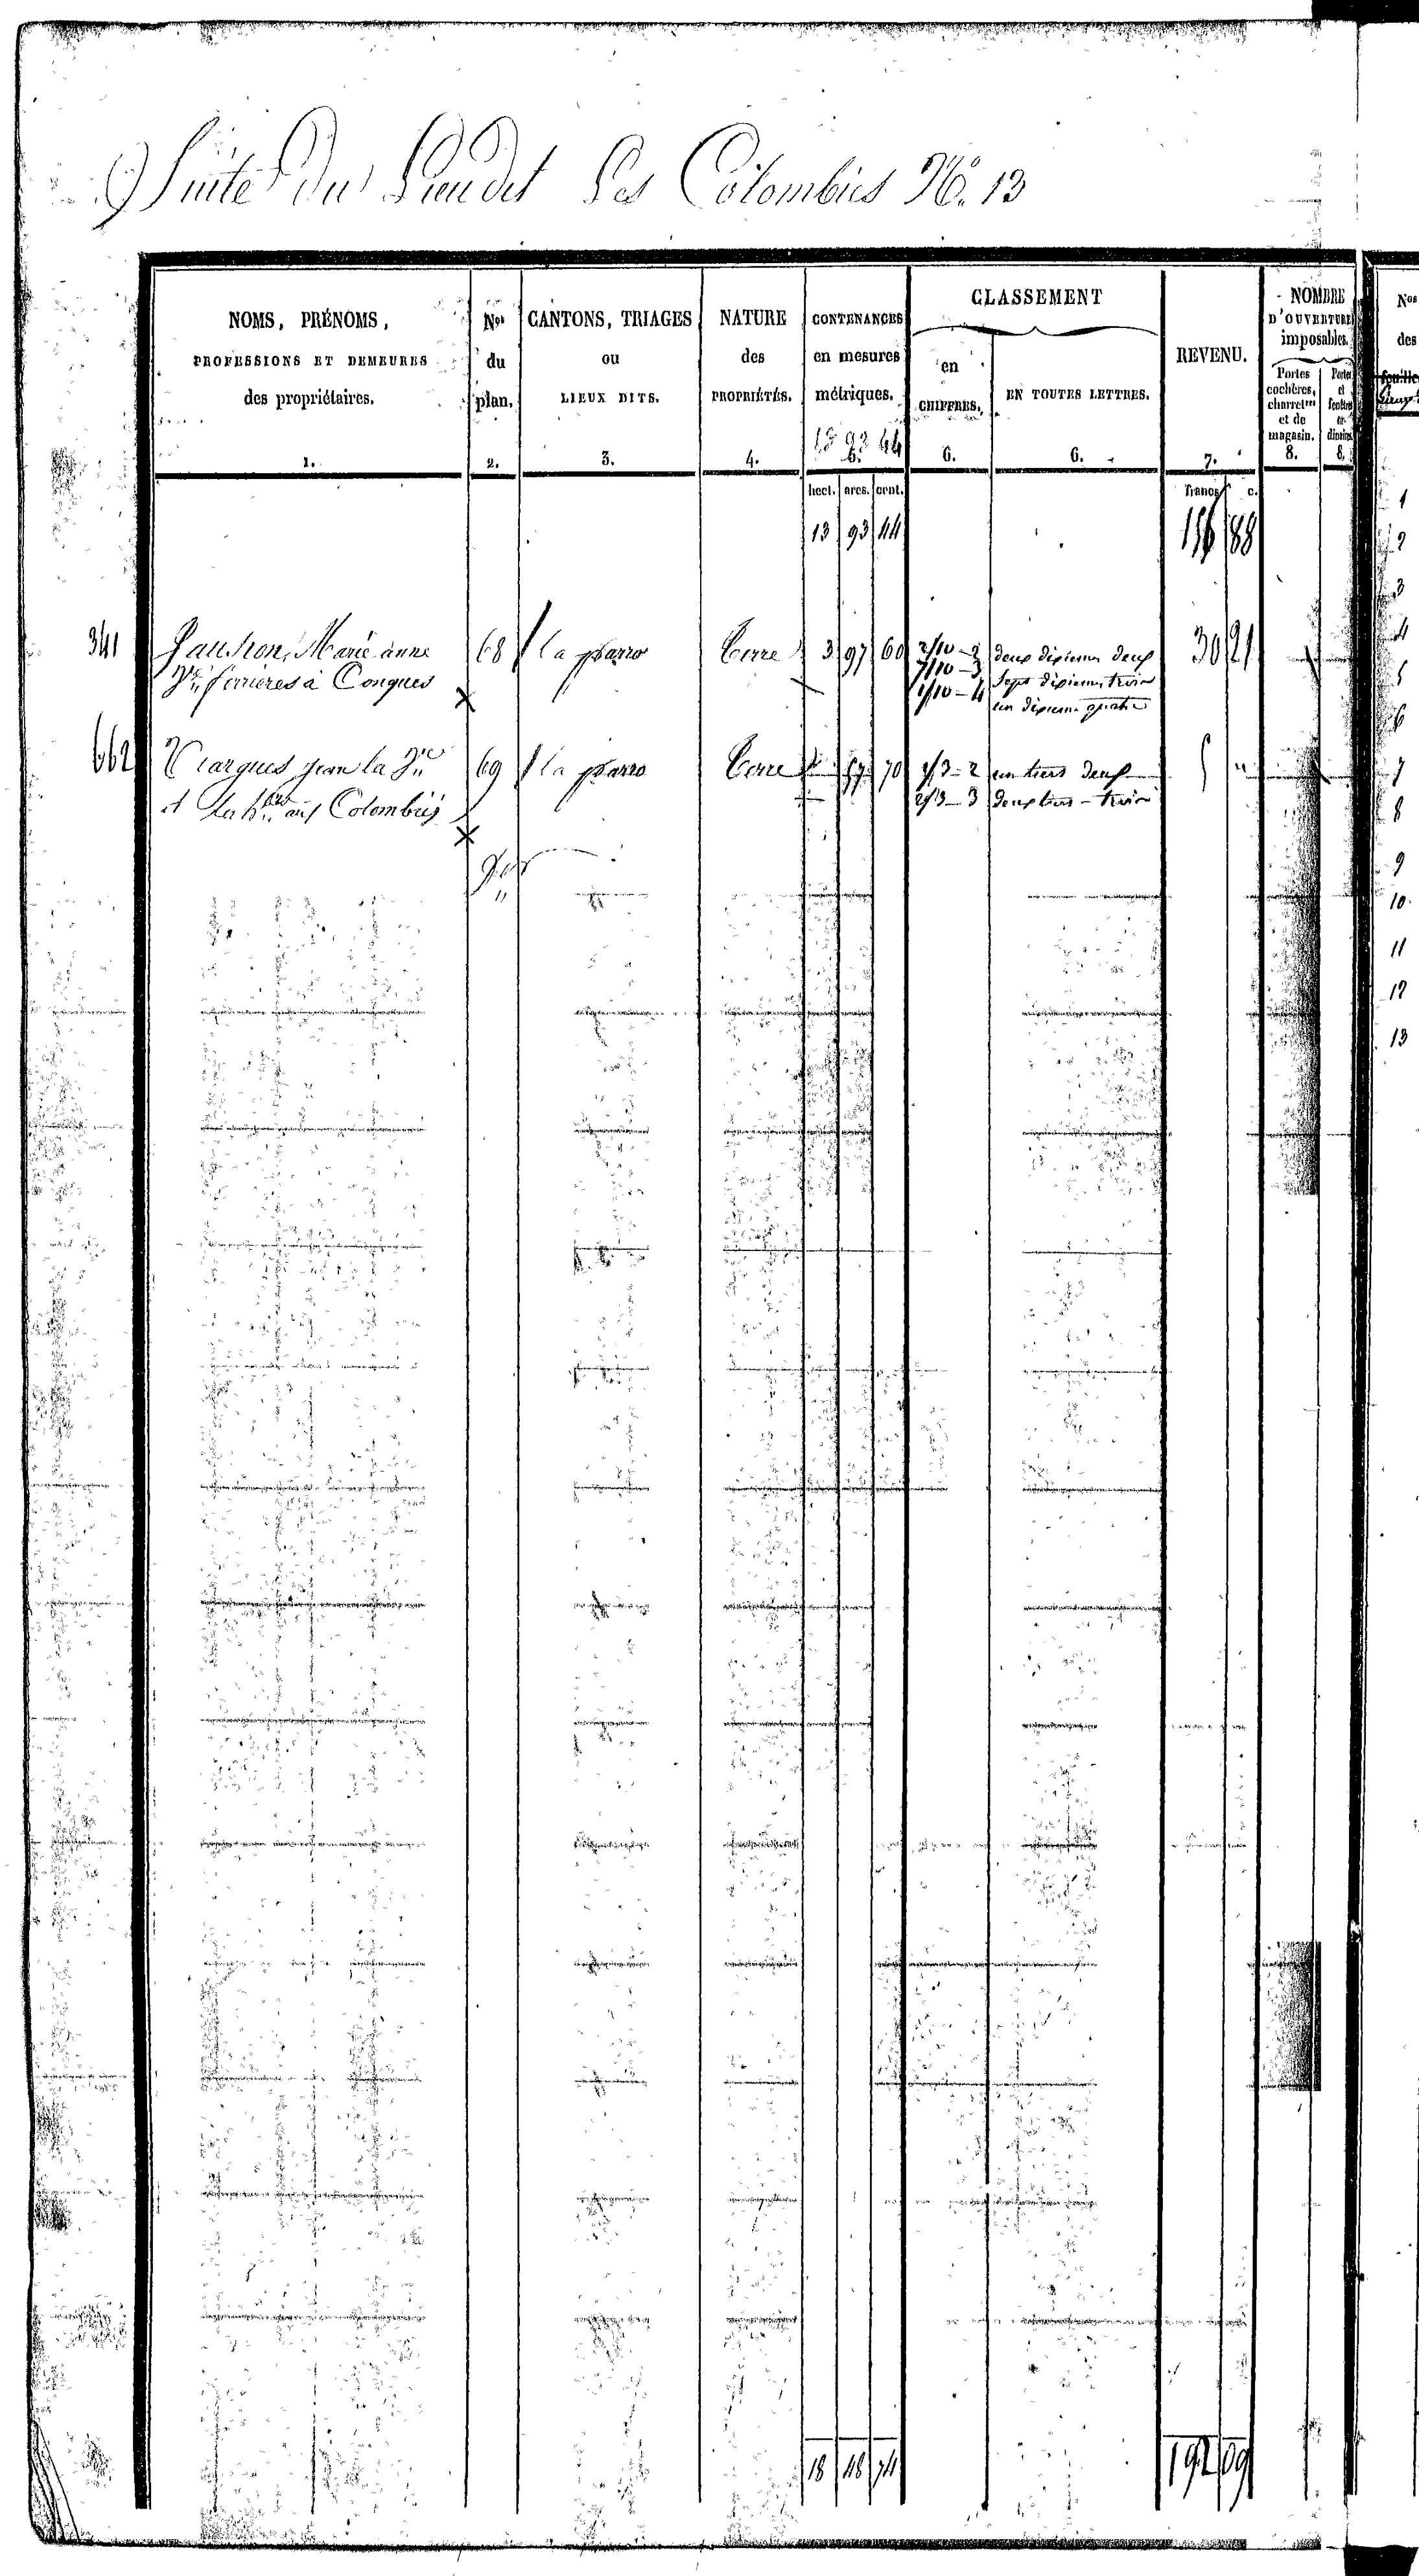 Suite du Lieu dit Les Colombiés No. 13
NOMS, PRÉNOMS,
PROFESSIONS ET DEMEURES
des propriétaires.
1.
Nos
du
plan.
2.
CANTONS, TRIAGES
ou
LIEUX DITS.
3.
NATURE
des
PROPRIÉTÉS.
4.
CONTENANCES
en mesures
métriques.
CLASSEMENT
en
CHIFFRES.
6.
EN TOUTES LETTRES.
6.
REVENU.
7.
NOMBRE
D'OUVERTURE
imposables.
Portes
cochères,
et de
magasin.
8.
8.
hect. ares. cent.
francs c.
13 93 44
156 88
341 Marie anne 68 la parro terre 3 97 60 2/10 - 2 deux dixiemes deux 30 21
ferrieres à Conques 7/10 - 3 sept dixiemes trois
1/10 - 4 un dixieme quatre
662 jean la 69 la parro terre 57 70 1/3 - 2 un tiers deux 5 "
aux Colombiés 2/3 - 3 deux tiers - trois
18 48 74
192 09
Nos
des
1
2
3
4
5
6
7
8
9
10
11
12
13